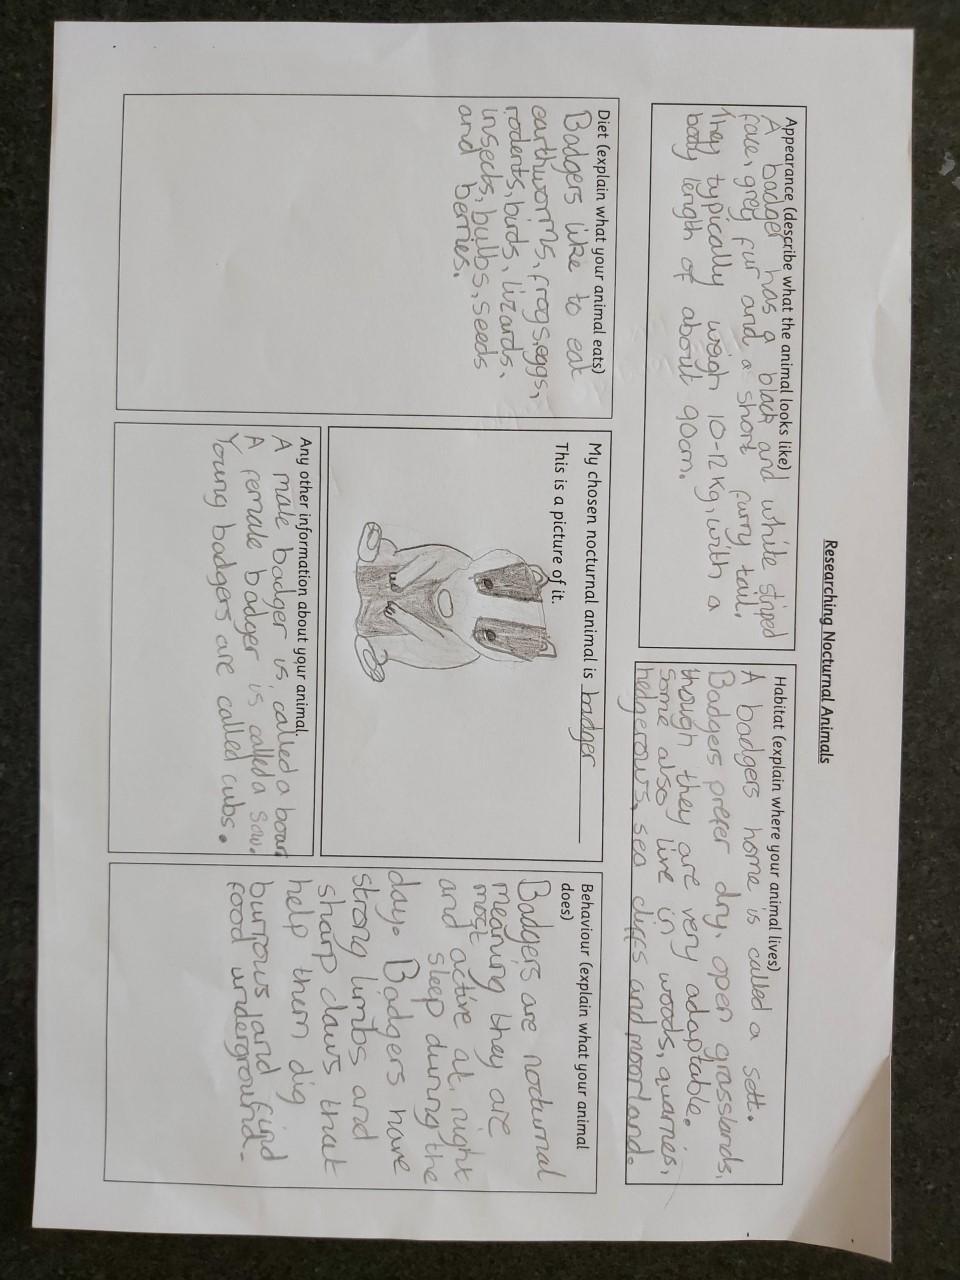 Researching Nocturnal Animals
Appearance (describe what the animal looks like)
A badger has a black and white striped
face, grey fur and a short furry tail.
They typically weigh 10-12 Kg, with a
body length of about 90cm.
Habitat (explain where your animal lives)
A badgers home is called a sett.
Badgers prefer dry, open grasslands,
though they are very adaptable.
Some also live in woods, quarries,
hedgerows, sea cliffs and moorland.
Diet (explain what your animal eats)
Badgers like to eat
earthworms, frogs, eggs,
rodents, birds, lizards,
insects, bulbs, seeds
and berries.
My chosen nocturnal animal is badger
This is a picture of it.
Any other information about your animal.
A male badger is called a boar
A female badger is called a sow.
Young badgers are called cubs.
Behaviour (explain what your animal
does)
Badgers are nocturnal
meaning they are
most active at night
and sleep during the
day. Badgers have
strong limbs and
sharp claws that
help them dig
burrows and find
food underground.